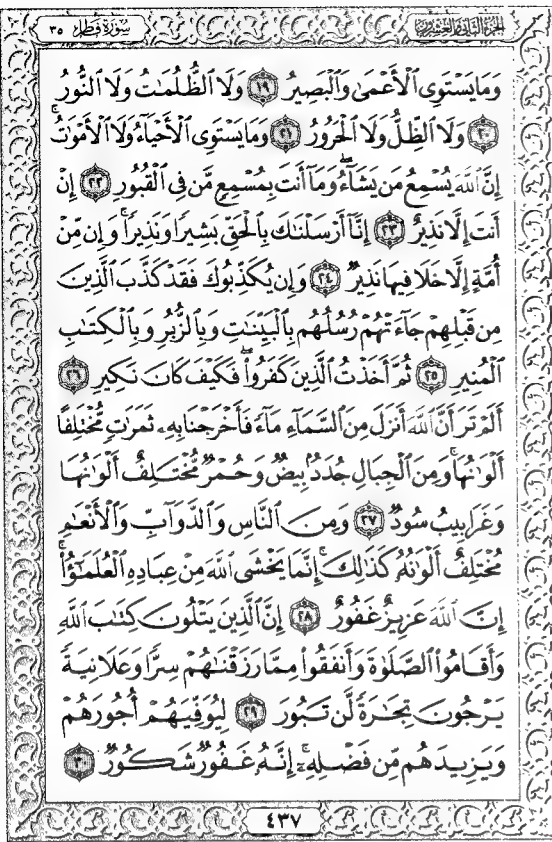 الجزء الثاني والعشرون
سورة فاطر ٣٥
وَمَا يَسْتَوِى ٱلْأَعْمَىٰ وَٱلْبَصِيرُ ١٩ وَلَا ٱلظُّلُمَٰتُ وَلَا ٱلنُّورُ
٢٠ وَلَا ٱلظِّلُّ وَلَا ٱلْحَرُورُ ٢١ وَمَا يَسْتَوِى ٱلْأَحْيَآءُ وَلَا ٱلْأَمْوَٰتُۚ
إِنَّ ٱللَّهَ يُسْمِعُ مَن يَشَآءُۖ وَمَآ أَنتَ بِمُسْمِعٍ مَّن فِى ٱلْقُبُورِ ٢٢ إِنْ
أَنتَ إِلَّا نَذِيرٌ ٢٣ إِنَّآ أَرْسَلْنَٰكَ بِٱلْحَقِّ بَشِيرًا وَنَذِيرًاۚ وَإِن مِّنْ
أُمَّةٍ إِلَّا خَلَا فِيهَا نَذِيرٌ ٢٤ وَإِن يُكَذِّبُوكَ فَقَدْ كَذَّبَ ٱلَّذِينَ
مِن قَبْلِهِمْ جَآءَتْهُمْ رُسُلُهُم بِٱلْبَيِّنَٰتِ وَبِٱلزُّبُرِ وَبِٱلْكِتَٰبِ
ٱلْمُنِيرِ ٢٥ ثُمَّ أَخَذْتُ ٱلَّذِينَ كَفَرُوا۟ۖ فَكَيْفَ كَانَ نَكِيرِ ٢٦
أَلَمْ تَرَ أَنَّ ٱللَّهَ أَنزَلَ مِنَ ٱلسَّمَآءِ مَآءً فَأَخْرَجْنَا بِهِۦ ثَمَرَٰتٍ مُّخْتَلِفًا
أَلْوَٰنُهَاۚ وَمِنَ ٱلْجِبَالِ جُدَدٌۢ بِيضٌ وَحُمْرٌ مُّخْتَلِفٌ أَلْوَٰنُهَا
وَغَرَابِيبُ سُودٌ ٢٧ وَمِنَ ٱلنَّاسِ وَٱلدَّوَآبِّ وَٱلْأَنْعَٰمِ
مُخْتَلِفٌ أَلْوَٰنُهُۥ كَذَٰلِكَۗ إِنَّمَا يَخْشَى ٱللَّهَ مِنْ عِبَادِهِ ٱلْعُلَمَٰٓؤُا۟ۗ
إِنَّ ٱللَّهَ عَزِيزٌ غَفُورٌ ٢٨ إِنَّ ٱلَّذِينَ يَتْلُونَ كِتَٰبَ ٱللَّهِ
وَأَقَامُوا۟ ٱلصَّلَوٰةَ وَأَنفَقُوا۟ مِمَّا رَزَقْنَٰهُمْ سِرًّا وَعَلَانِيَةً
يَرْجُونَ تِجَٰرَةً لَّن تَبُورَ ٢٩ لِيُوَفِّيَهُمْ أُجُورَهُمْ
وَيَزِيدَهُم مِّن فَضْلِهِۦٓۚ إِنَّهُۥ غَفُورٌ شَكُورٌ ٣٠
٤٣٧